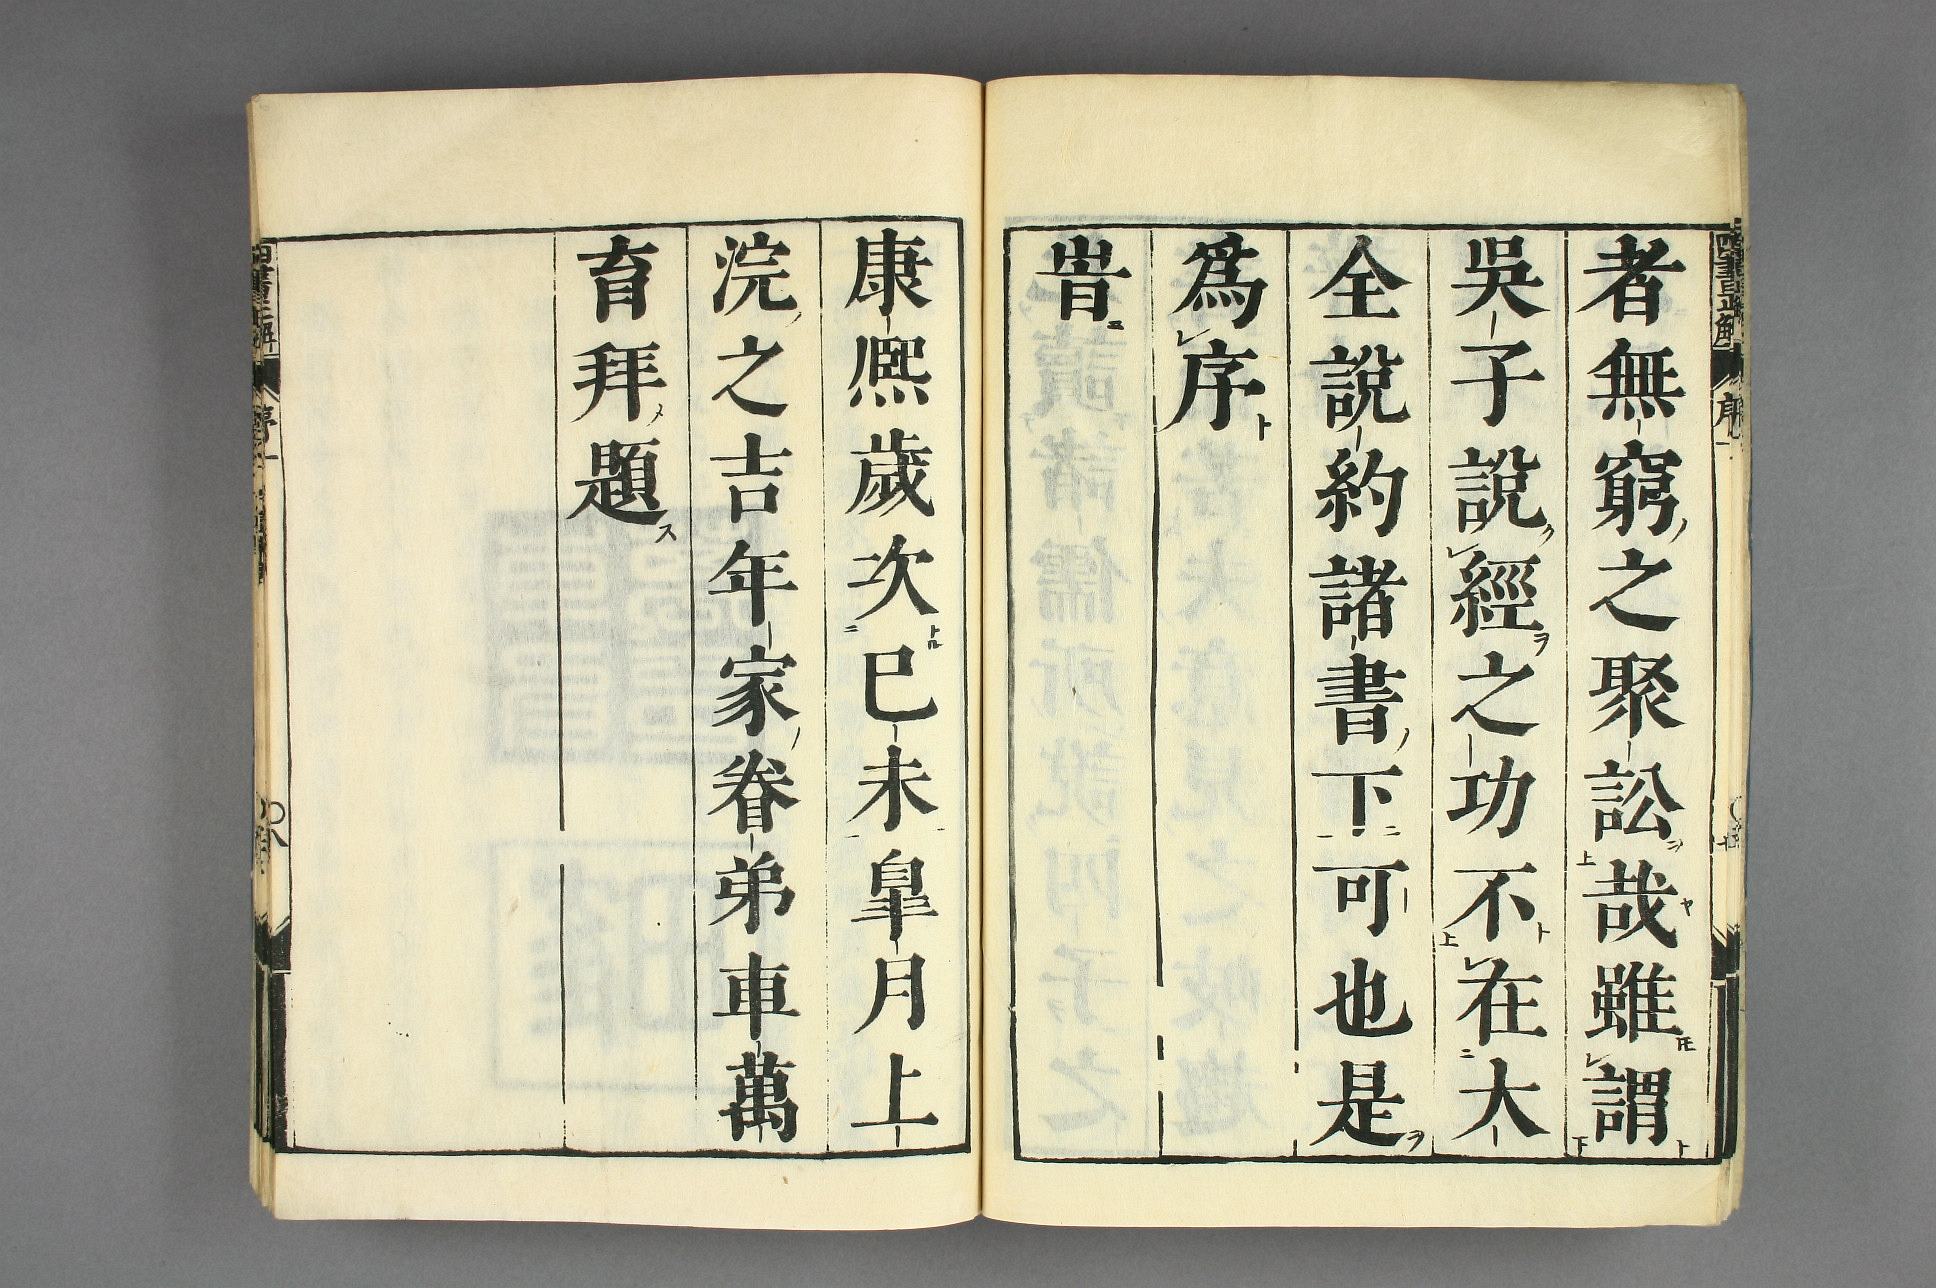 者無窮之聚訟哉雖謂
吳子說經之功不在大
全說約諸書下可也是
爲序
旹
康熙歲次巳未皐月上
浣之吉年家眷弟車萬
育拜題